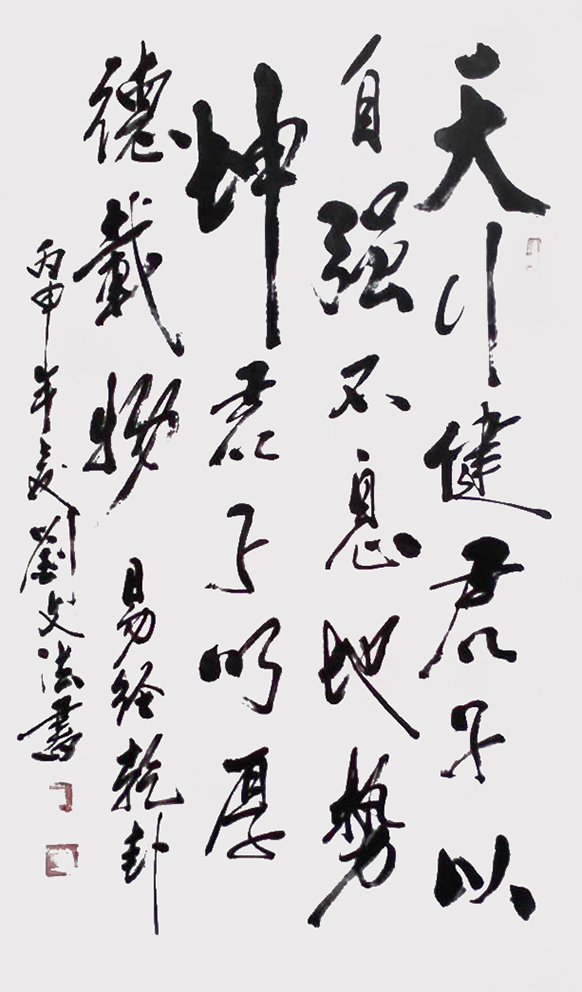 天行健君子以
自强不息地势
坤君子以厚
德载物 易经乾卦
丙申年夏刘文法书